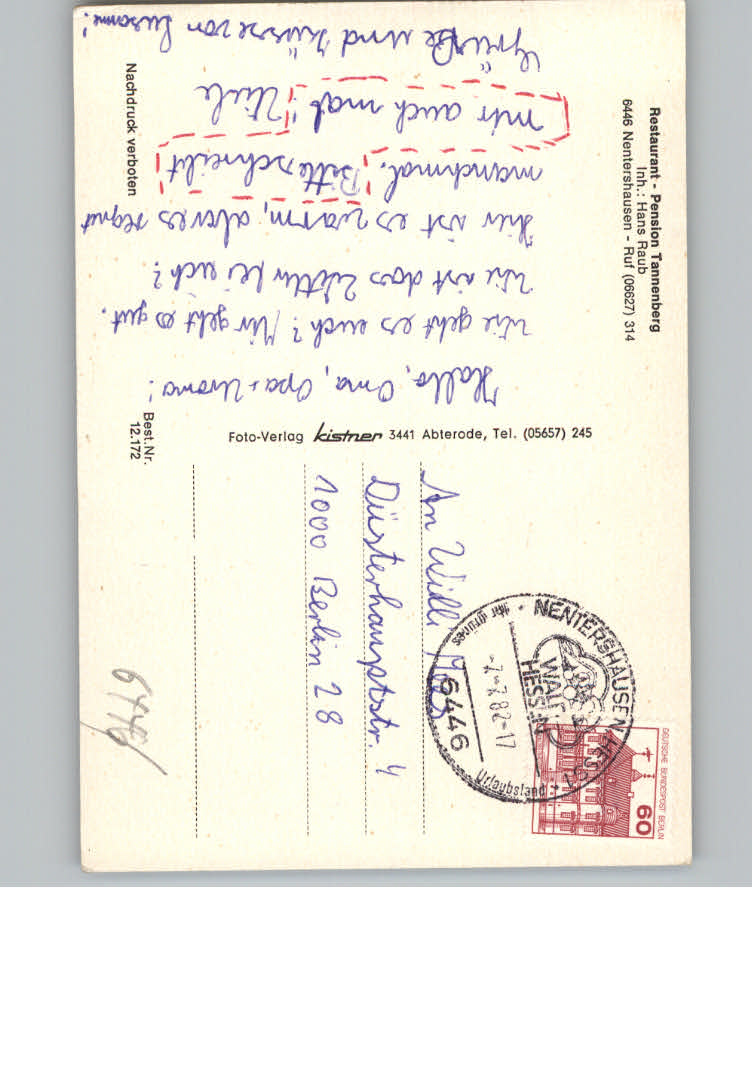 Restaurant - Pension Tannenberg
Inh.: Hans Raub
6446 Nentershausen - Ruf (06627) 314
Hallo, Oma, Opa + Uroma!
Wie geht es euch? Mir geht es gut.
Wie ist das Wetter bei euch?
Hier ist es warm, aber es regnet
manchmal. Bitte schreibt
mir auch mal! Viele
Grüße und Küsse von Susanne!
Nachdruck verboten
Best.Nr.
12.172
Foto-Verlag kistner 3441 Abterode, Tel. (05657) 245
DEUTSCHE BUNDESPOST BERLIN
60
NENTERSHAUSEN, HESS 1
WALD
HESSEN
-7.-7.82-17
6446
Ihr grünes
Urlaubsland
An Willi
Düsterhauptstr. 4
1000 Berlin 28
6446